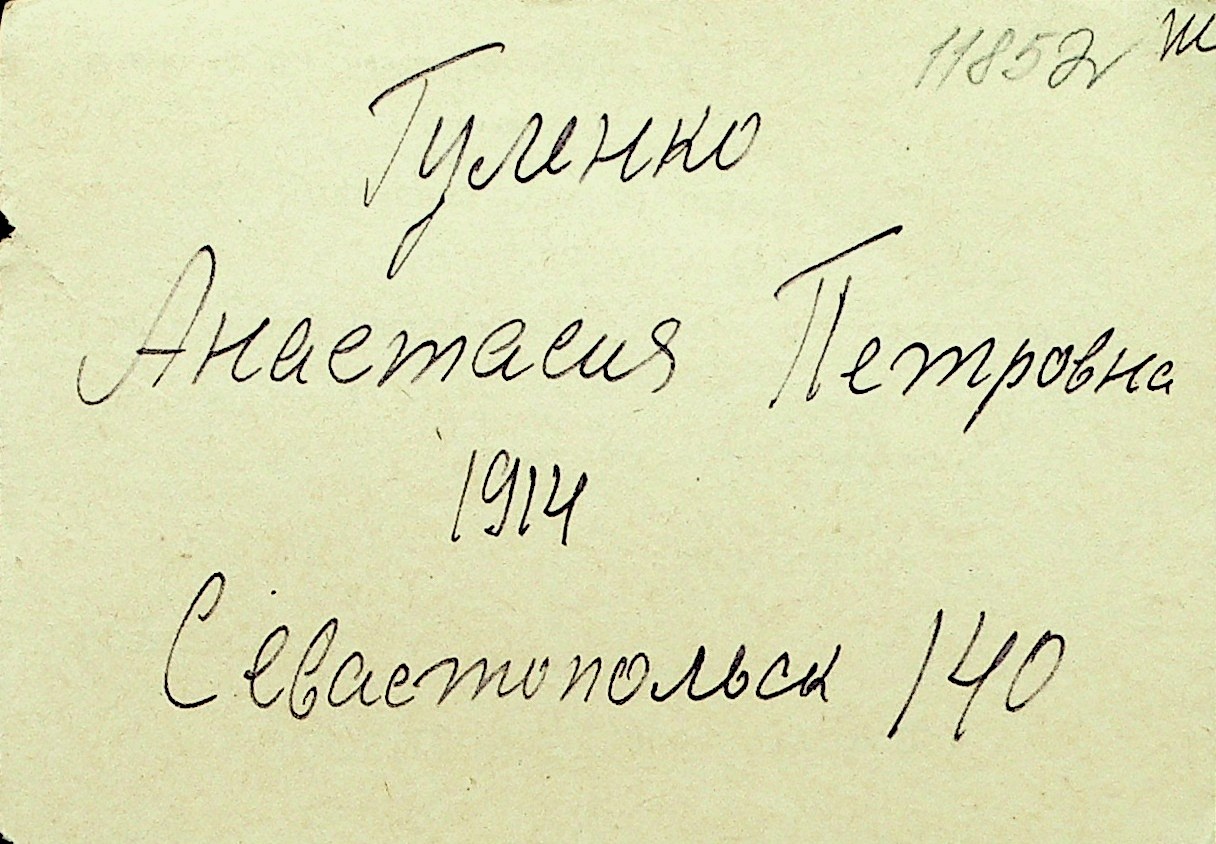 11852 Ж
Гуленко
Анастасия Петровна
1914
Севастопольск 140